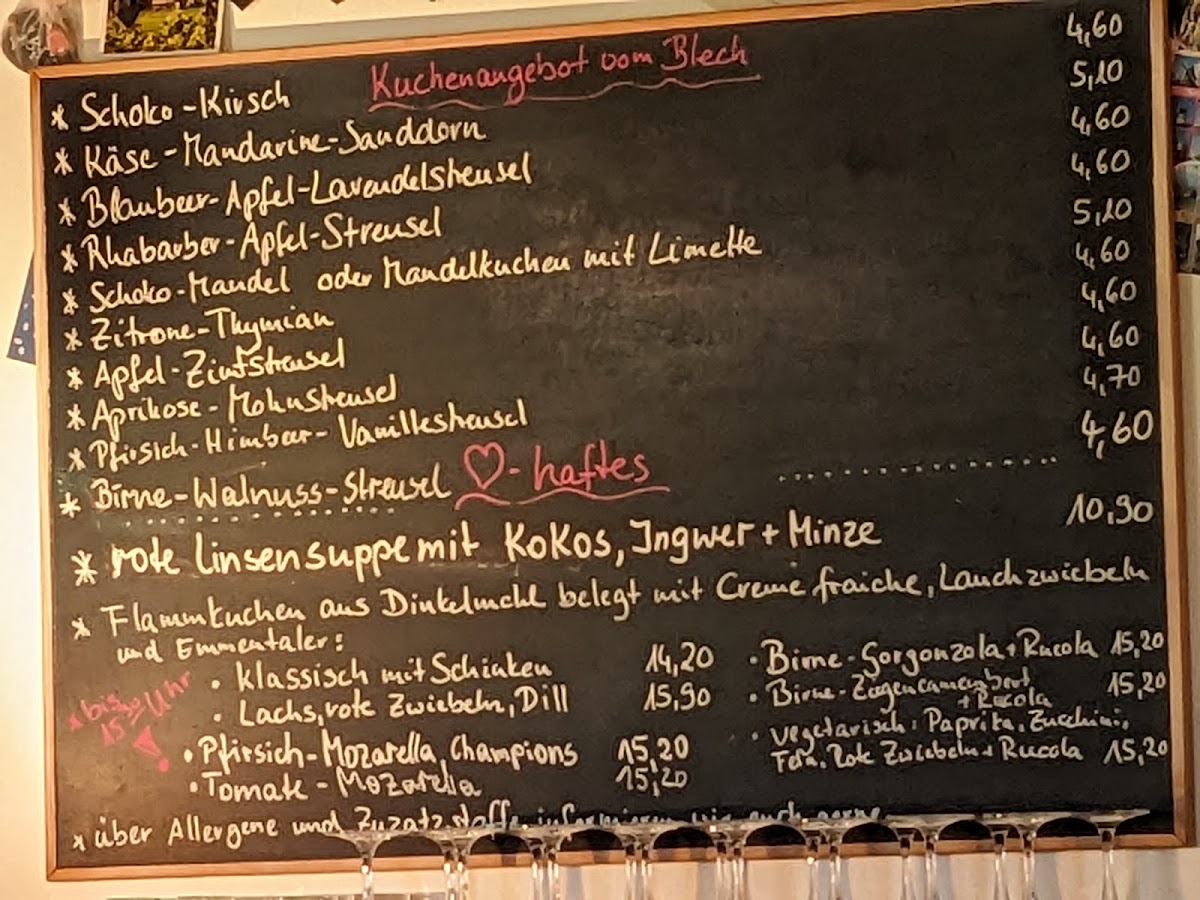 Kuchenangebot vom Blech
* Schoko-Kirsch 4,60
* Käse-Mandarine-Sanddorn 5,10
* Blaubeer-Apfel-Lavendelstreusel 4,60
* Rhabarber-Apfel-Streusel 4,60
* Schoko-Mandel oder Mandelkuchen mit Limette 5,10
* Zitrone-Thymian 4,60
* Apfel-Zimtstreusel 4,60
* Aprikose-Mohnstreusel 4,60
* Pfirsich-Himbeer-Vanillestreusel 4,70
* Birne-Walnuss-Streusel 4,60
♡-haftes
* rote Linsensuppe mit Kokos, Ingwer + Minze 10,90
* Flammkuchen aus Dinkelmehl belegt mit Creme fraiche, Lauchzwiebeln
und Emmentaler:
* bis
15 Uhr
!
• klassisch mit Schinken 14,20
• Lachs, rote Zwiebeln, Dill 15,90
• Pfirsich-Mozarella, Champions 15,20
• Tomate-Mozarella 15,20
• Birne-Gorgonzola + Rucola 15,20
• Birne-Ziegencamembert 15,20
+ Rucola
• vegetarisch: Paprika, Zucchini,
Feta, Rote Zwiebeln + Rucola 15,20
* über Allergene und Zusatzstoffe informieren wir euch gerne